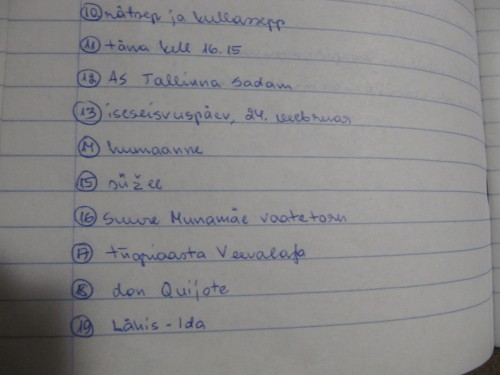 10 rätsep ja kullassepp
11 täna kell 16.15
12 AS Tallinna Sadam
13 iseseisvuspäev, 24. veebruar
14 humaanne
15 süžee
16 Suure Munamäe vaatetorn
17 tiigriaasta Veevalaja
18 don Quijote
19 Lähis-Ida